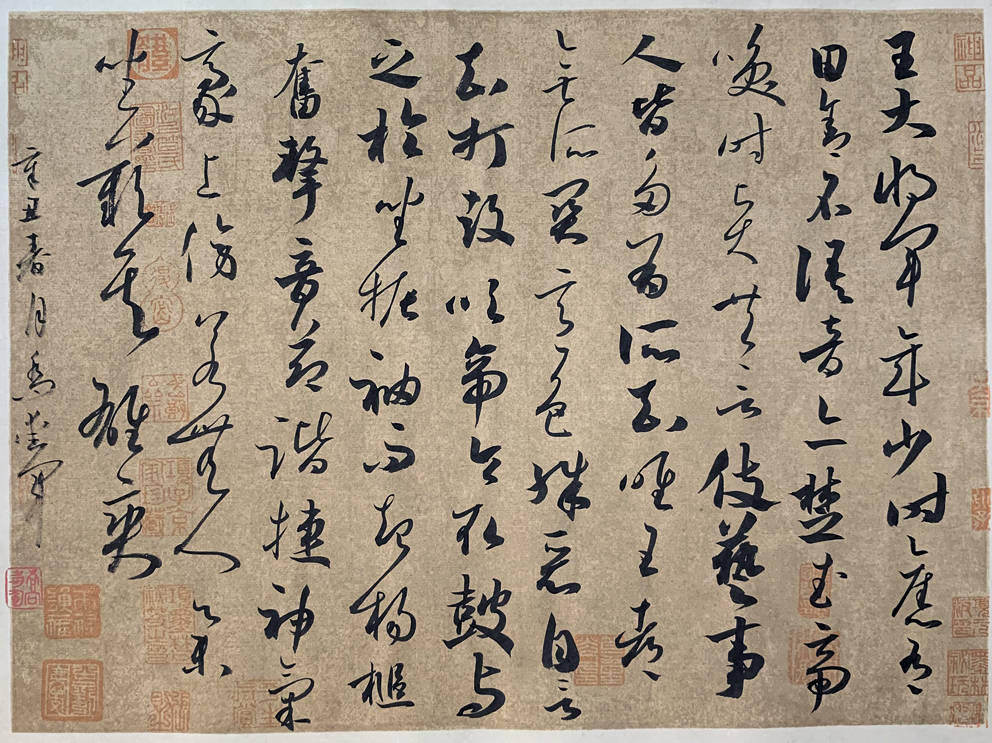 王大將軍年少時舊有
田舍名語音亦楚武帝
喚時賢共言伎藝事
人皆多有所知唯王都
無所關意色殊惡自言
知打鼓吹帝令取鼓與
之於坐振袖而起揚
奮擊音節諧捷神氣
豪上傍若無人舉
坐歎其雄爽
辛丑春月
神品